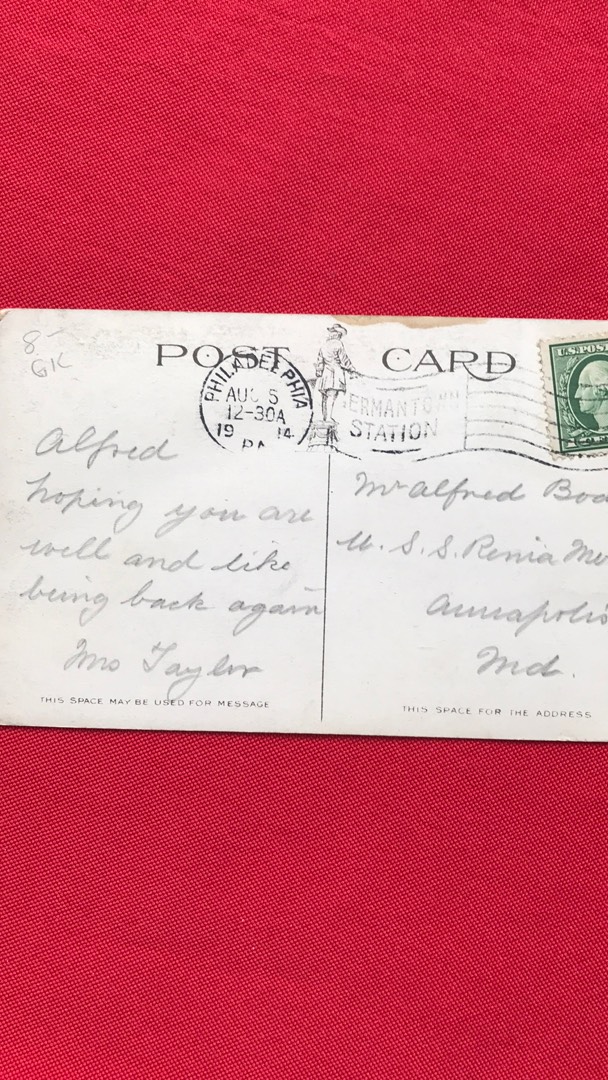 8-
GK
POST CARD
PHILADELPHIA
AUG 5
12-30A
19 14
PA
GERMANTOWN
STATION
U.S. POST
Alfred
hoping you are
well and like
being back again
Mrs Taylor
THIS SPACE MAY BE USED FOR MESSAGE
Mr Alfred
U. S. S. Renia
Annapolis
Md.
THIS SPACE FOR THE ADDRESS